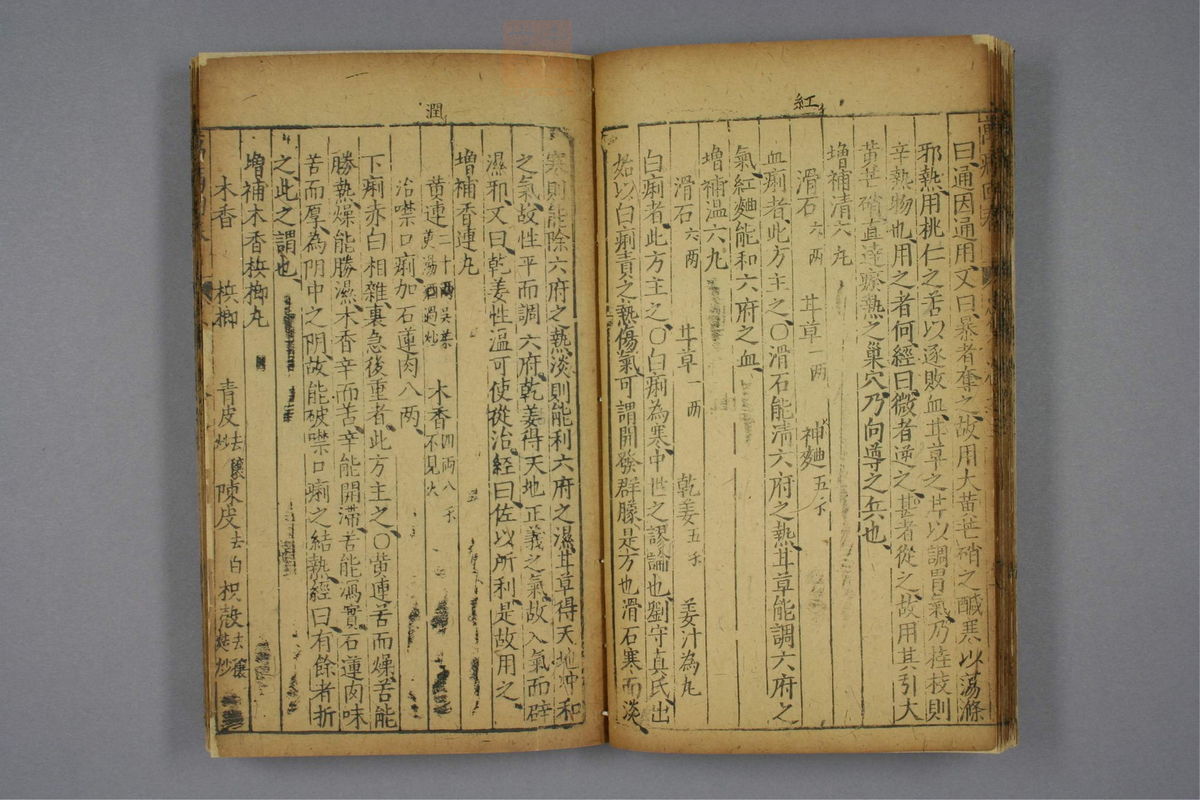 紅
曰通因通用又曰暴者奪之故用大黃芒硝之醎寒以蕩滌
邪熱用桃仁之苦以逐敗血甘草之甘以調胃氣乃桂枝則
辛熱物也用之者何經曰微者逆之甚者從之故用其引大
黃芒硝直達瘀熱之巢穴乃向導之兵也
增補清六丸
滑石六两 甘草一两 神麯五錢
血痢者此方主之〇滑石能清六府之熱甘草能調六府之
氣紅麯能和六府之血
增補温六丸
滑石六两 甘草一两 乾姜五錢 姜汁為丸
白痢者此方主之〇白痢為寒中世之謬論也劉守真氏出
始以白痢責之熱傷氣可謂開發群朦是方也滑石寒而淡
潤
寒則能除六府之熱淡則能利六府之濕甘草得天地冲和
之氣故性平而調六府乾姜得天地正義之氣故入氣而辟
濕邪又曰乾姜性温可使從治經曰佐以所利是故用之
增補香連丸
黃連二十两吳茱萸湯洒過炒 木香四两八錢不見火
治噤口痢加石蓮肉八两
下痢赤白相雜裏急後重者此方主之〇黃連苦而燥苦能
勝熱燥能勝濕木香辛而苦辛能開滯苦能瀉實石蓮肉味
苦而厚為阴中之阴故能破噤口痢之結熱經曰有餘者折
之此之謂也
增補木香梹榔丸
木香 梹榔 青皮去穰炒 陳皮去白 枳殼去穰麸炒